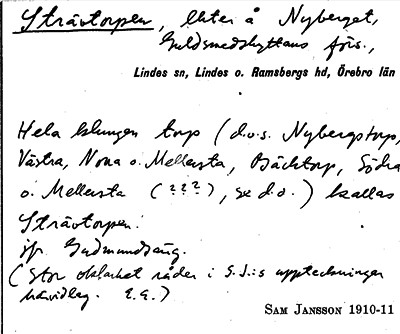 Strävtorpen, Uktei å Nyberget,
Guldsmedshyttans förs.,
Lindes sn, Lindes o. Ramsbergs hd, Örebro län
Hela klungen torp (d.v.s. Nybergstorp,
Västra, Norra o. Mellersta, Bäcktorp, Södra
o. Mellersta (???), se d.o.) kallas
Strävtorpen.
jfr Gudmundsäng.
(Stor oklarhet råder i S.J:s uppteckningar
härvidlag. E.G.)
SAM JANSSON 1910-11